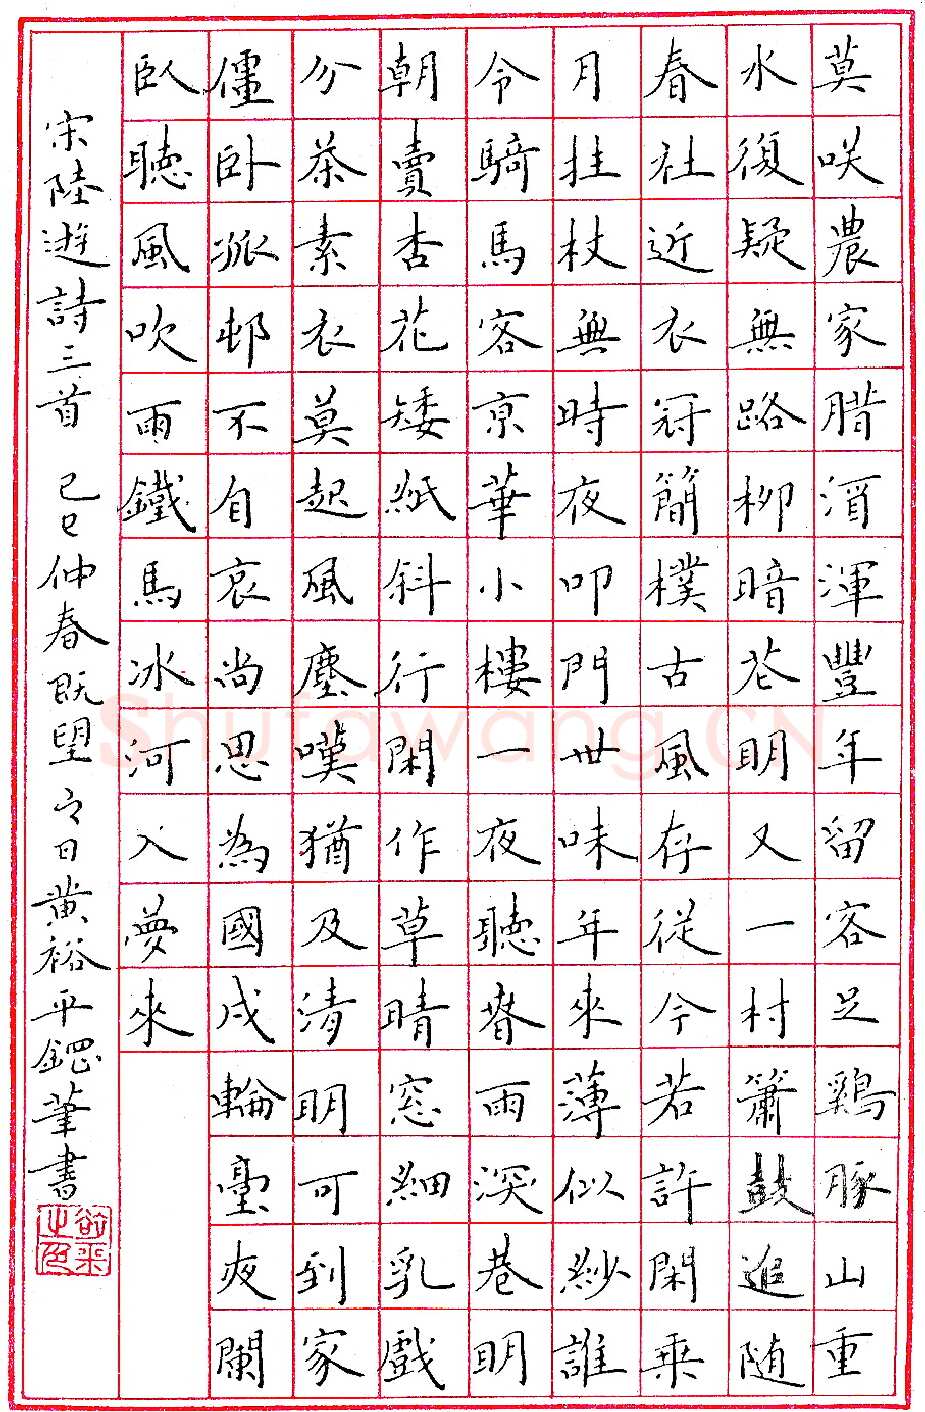 莫咲農家腊酒渾豐年留客足鷄豚山重
水復疑無路柳暗花明又一村簫鼓追随
春社近衣冠簡樸古風存從今若許閑乘
月拄杖無時夜叩門世味年來薄似紗誰
令騎馬客京華小樓一夜聽春雨深巷明
朝賣杏花矮紙斜行閑作草晴窓細乳戲
分茶素衣莫起風塵嘆猶及清明可到家
僵卧孤邨不自哀尚思為國戍輪臺夜闌
臥聽風吹雨鐵馬冰河入夢來
宋陸遊詩三首 己巳仲春既望之日黄裕平鋼筆書
Shufawang.CN